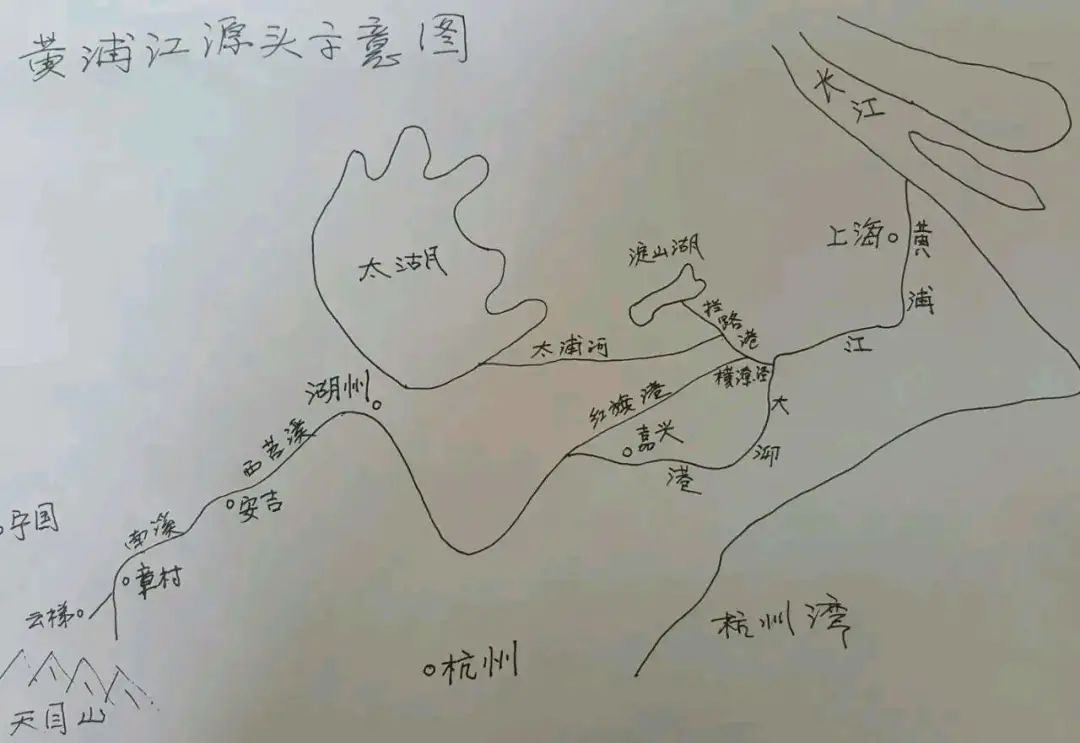 黄浦江源头示意图
长江
上海
黄浦江
淀山湖
太湖
拦路港
太浦河
横潦泾
红旗港
大泖港
嘉兴
湖州
西苕溪
安吉
宁国
南溪
章村
云梯
天目山
杭州
杭州湾